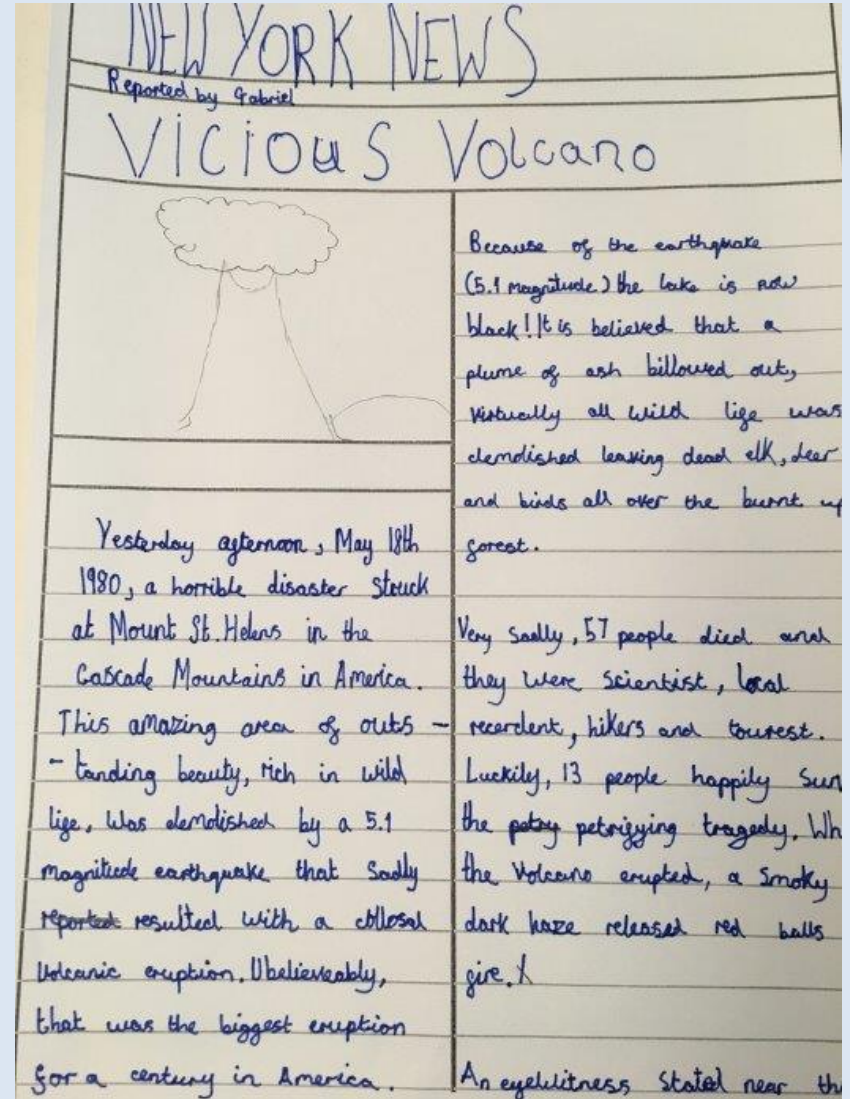 NEW YORK NEWS
Reported by Gabriel
Vicious Volcano
Yesterday afternoon, May 18th
1980, a horrible disaster struck
at Mount St. Helens in the
Cascade Mountains in America.
This amazing area of outs -
- tanding beauty, rich in wild
life, was demolished by a 5.1
magnitude earthquake that sadly
reported resulted with a collosal
volcanic eruption. Ubelieveably,
that was the biggest eruption
for a century in America.
Because of the earthquake
(5.1 magnitude) the lake is now
black! It is believed that a
plume of ash billowed out,
virtually all wild life was
demolished leaving dead elk, deer
and birds all over the burnt up
forest.
Very sadly, 57 people died and
they were scientist, local
recerdent, hikers and tourest.
Luckily, 13 people happily
the petrifying tragedy.
the volcano erupted, a smoky
dark haze released red balls
fire.
An eyewitness stated near